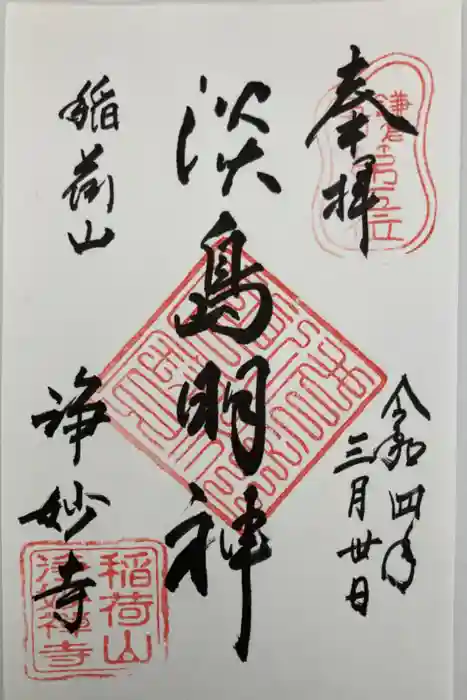 奉拝
鎌倉
令和四年
三月卅日
淡島明神
稲荷山
浄妙寺
稲荷山
浄妙禅寺